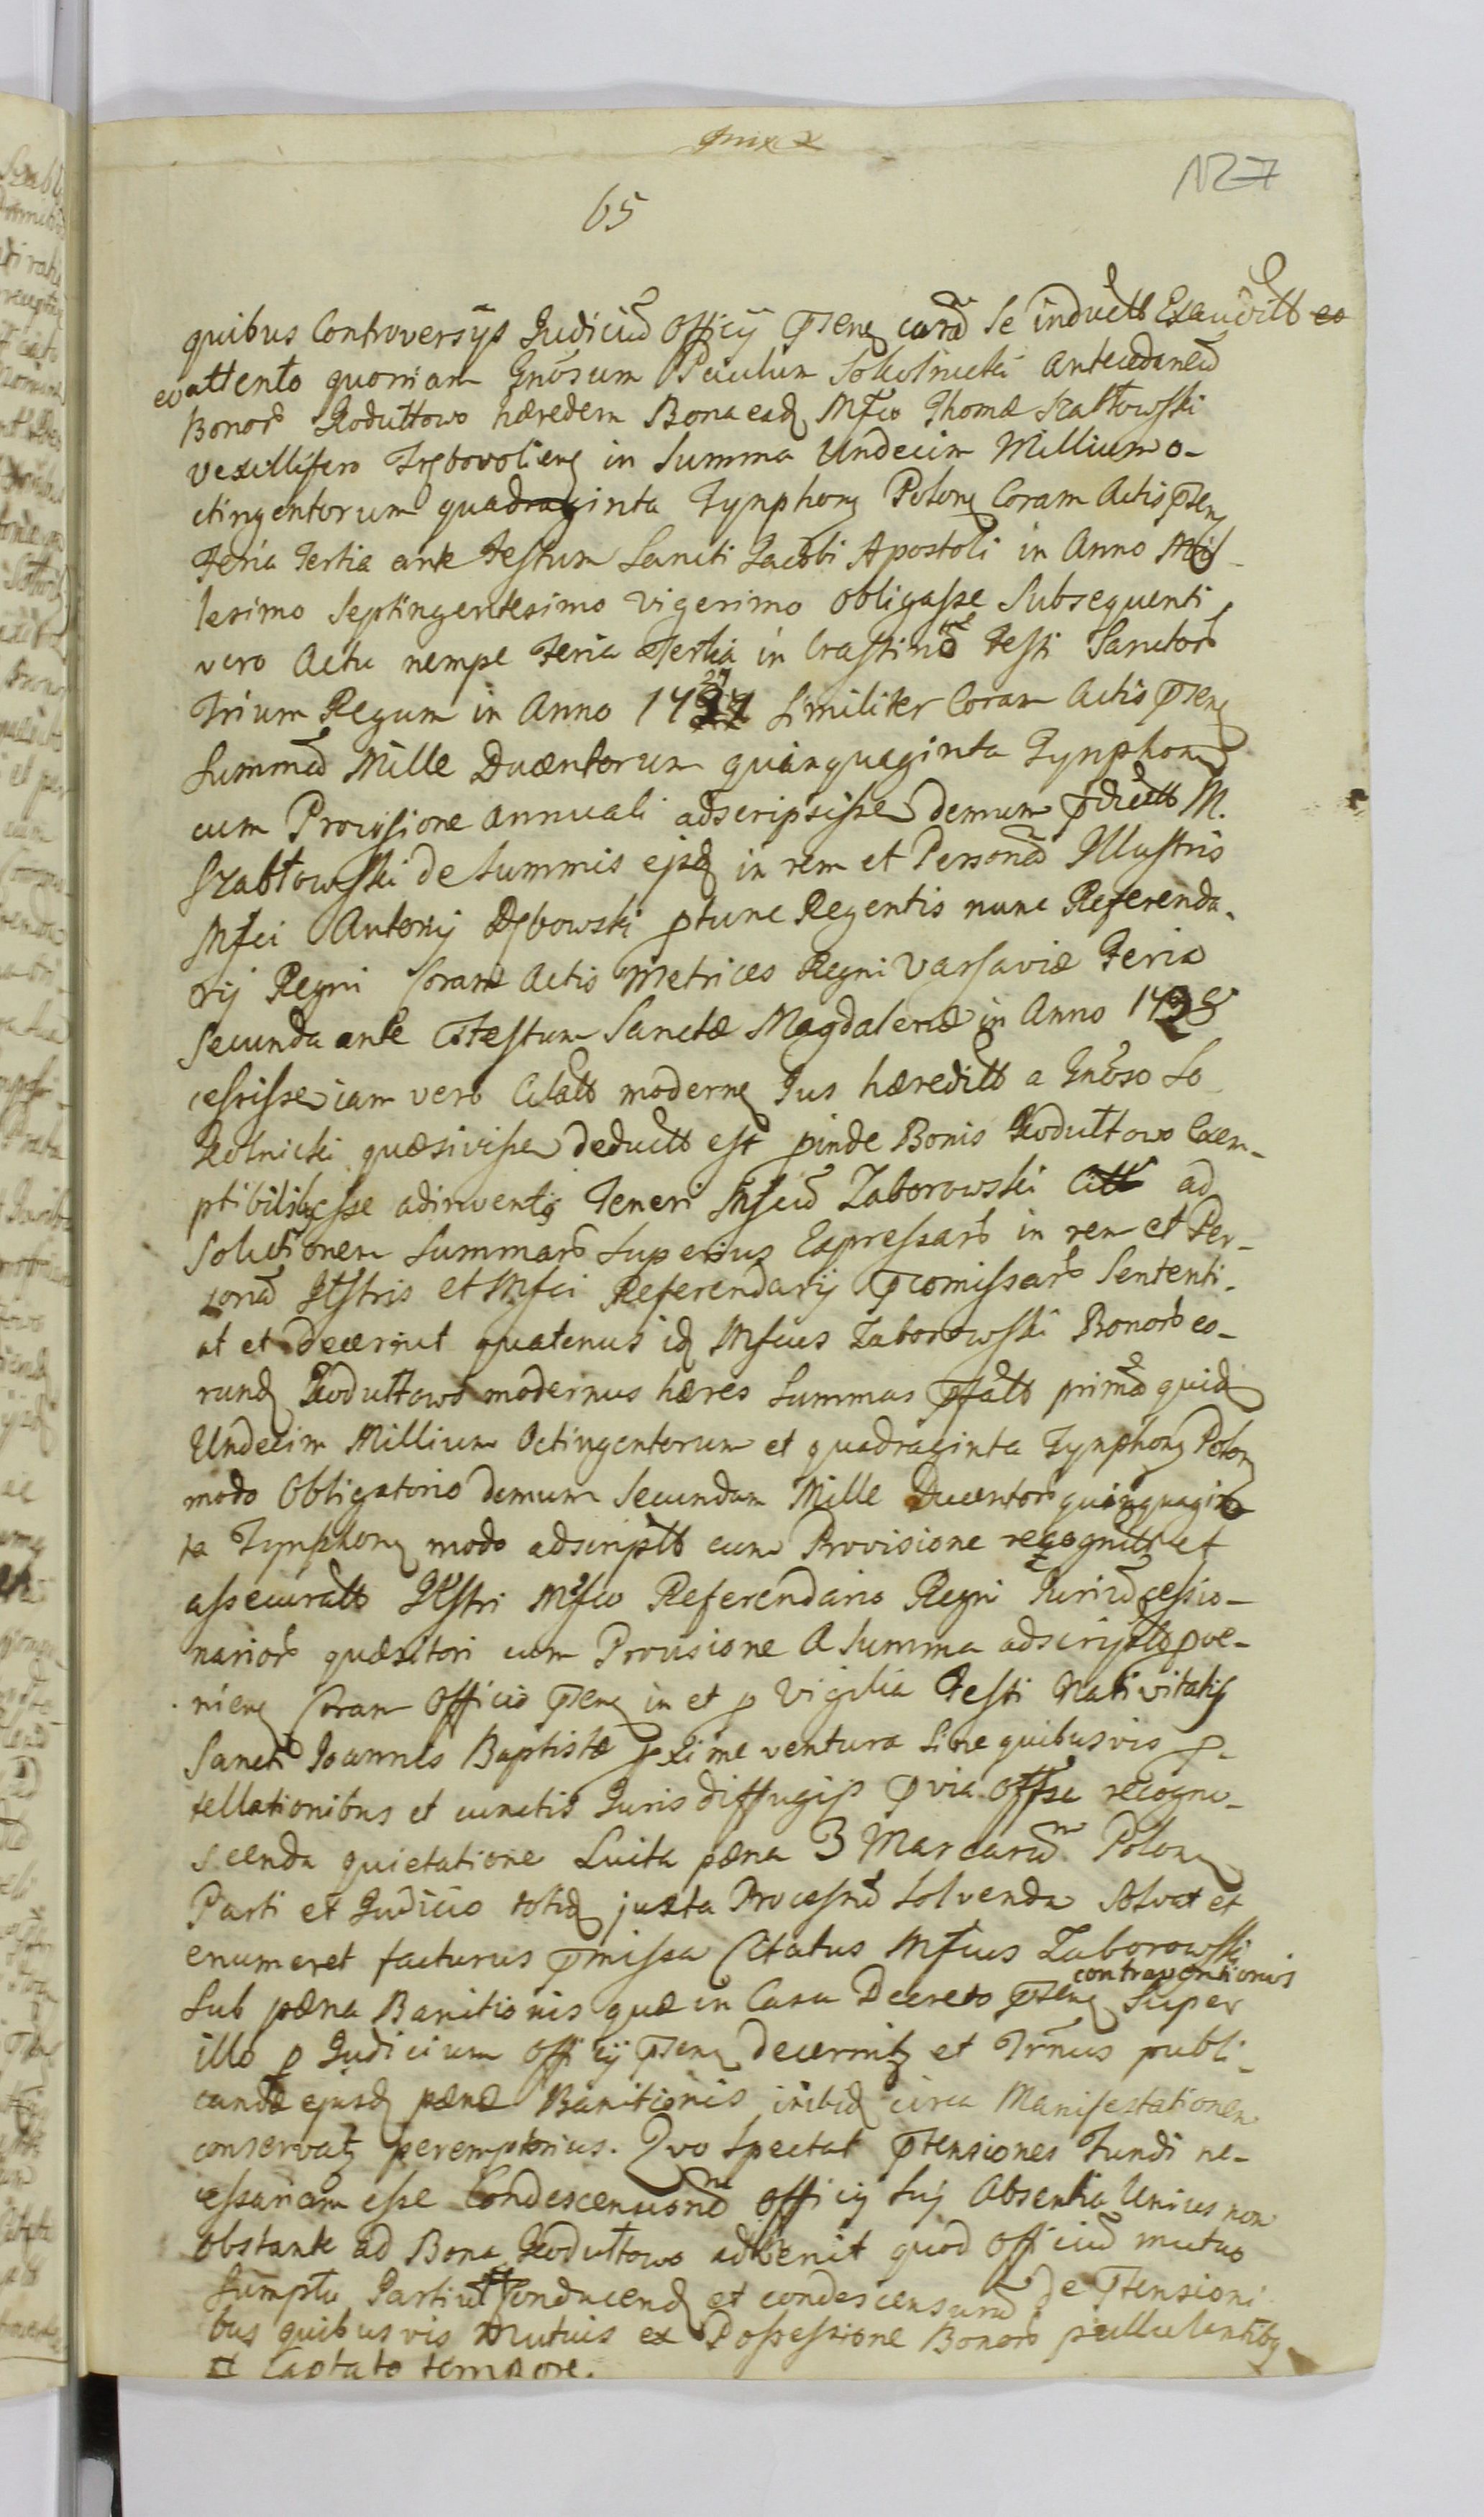 127
65
quibus Controversijs Judiciũ Officij pñseng curã Se inductt Exauditt eo
eo attento quoniam Gnõsum Paulum Sokolnicki Antecedaneũ
Bonorũ Kodułtowo hæredem Bona eadq Mfco Thomæ Szabłowski
vexillifero Trębovolieng in Summa Undecim Millium o-
ctingentorum quadraginta Tynphong Polong Coram Actis pñseng
Feria Tertia ante Festum Sancti Jacobi Apostoli in Anno Mil-
lesimo Septingentesimo vigesimo obligasse Subsequenti
vero Actu nempe Feria Tertia in Crastinõ Festi Sanctorũ
Trium Regum in Anno 1727 Similiter Coram Actis pñseng
Summã Mille Ducentorum quinquaginta Tynphong
cum Provisione annuali adscripsisse demum pdictt M.
Szabłowski de Summis ejsdq in rem et Personã Illustris
Mfci Antonij Dębowski ptunc Regentis nunc Referenda-
rij Regni Coram Actis Metrices Regni Varsaviæ Feria
Secunda ante Festum Sanctæ Magdalenæ in Anno 1728
cessisse iam vero Citatt moderng Jus hæreditt a Gnõso So
kolnicki quæsivisse deductt est pinde Bonis Kodułtowo Exem-
ptibilibg esse adinventis Teneri Mfcũ Zaborowski Citt ad
Solutionem Summarũ Superius Expressarũ in rem et Per-
sonã Illstris et Mfci Referendarij pcomissarũ Sententi-
at et decernit quatenus idq Mfcus Zaborowski Bonorũ eo-
rundq Kodułtowo modernus hæres Summas pfatt primã quidq
Undecim Millium Octingentorum et quadraginta Tynphong Polong
modo Obligatorio demum Secundam Mille Ducentorũ quinquagin
ta Tynphong modo adscriptt cum Provisione recognitt et
assecuratt Illstri Mfco Referendario Regni Juriũ cessio-
nariorũ quæsitori cum Provisione A Summa adscriptt pve-
nieng Coram Officio pñseng in et p Vigilia Festi Nativitatis
Sancti Joannis Baptistæ pxime ventura Sine quibusvis p-
tellationibus et cunctis Juris diffugijs pvia Offse recogno-
scenda quietatione Luita pæna 3 Marcarũ Polong
Parti et Judicio totidq juxta Processũ Solvenda Solvat et
enumeret facturus pmissa Citatus Mfcus Zaborowski
Sub pæna Banitionis quæ in Casu Decreto pñseng contraventionis Super
illo p Judicium Officij pñseng decernitg et Trñnus publi-
candæ ejusdq pænæ Banitionis inibidq circa Manifestationem
conservatg peremptorius. Quo Spectat ptensiones Fundi ne-
cessariam esse Condescensionẽ officij Suj Absentia Unius non
obstante ad Bona Kodułtowo adinvenit quod officiũ mutuo
Sumptu Partiũ conducendq et condescensurũ de ptensioni
bus quibusvis Mutuis ex Possessione Bonorũ pullulantibg
et Captato tempore.